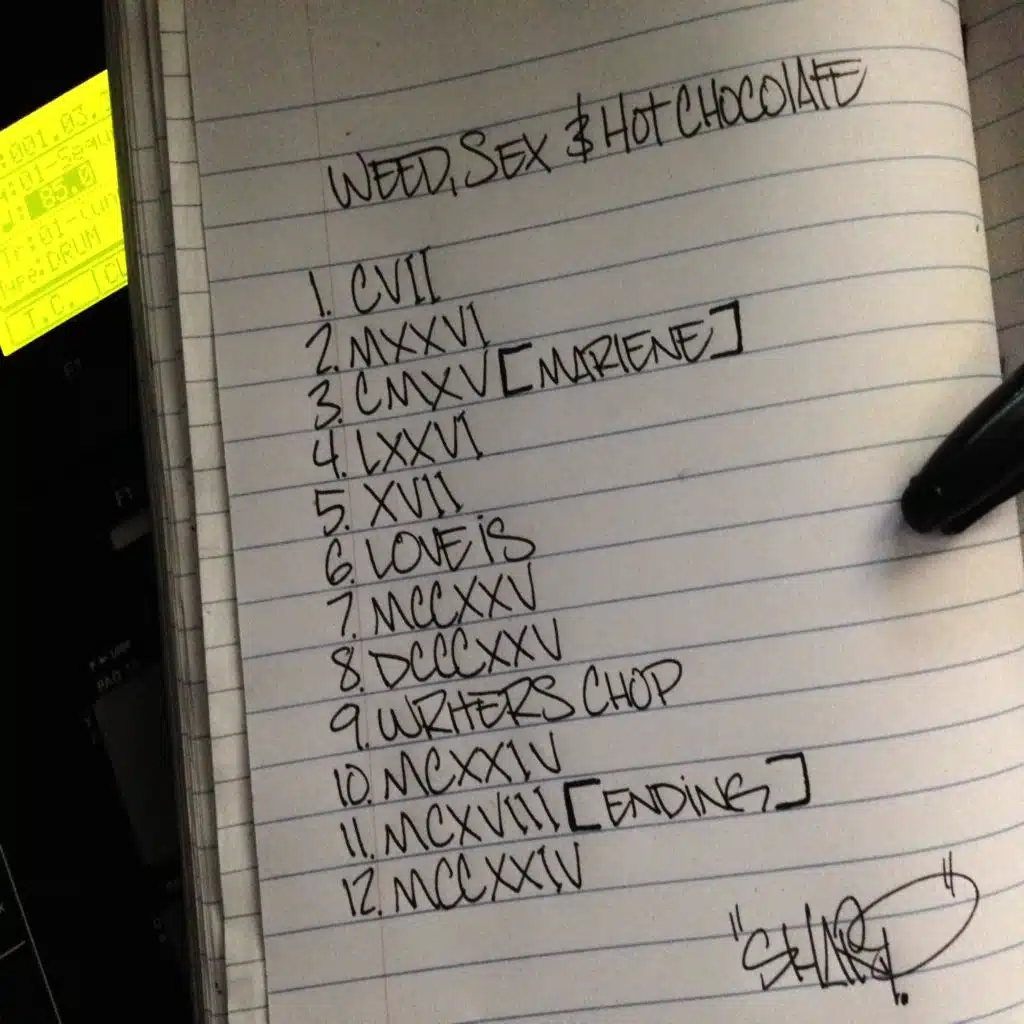 WEED, SEX $ HOT CHOCOLATE
1. CVII
2. MXXVI
3. CMXV [MARLENE]
4. LXXVI
5. XVII
6. LOVE iS
7. MCCXXV
8. DCCCXXV
9. WRITERS CHOP
10. MCXXIV
11. MCXVIII [ENDiNG]
12. MCCXXIV
:001.03.
:01-Sequ
: 85.0
Tr:01-
Type:DRUM
T.C.
F1
PAD